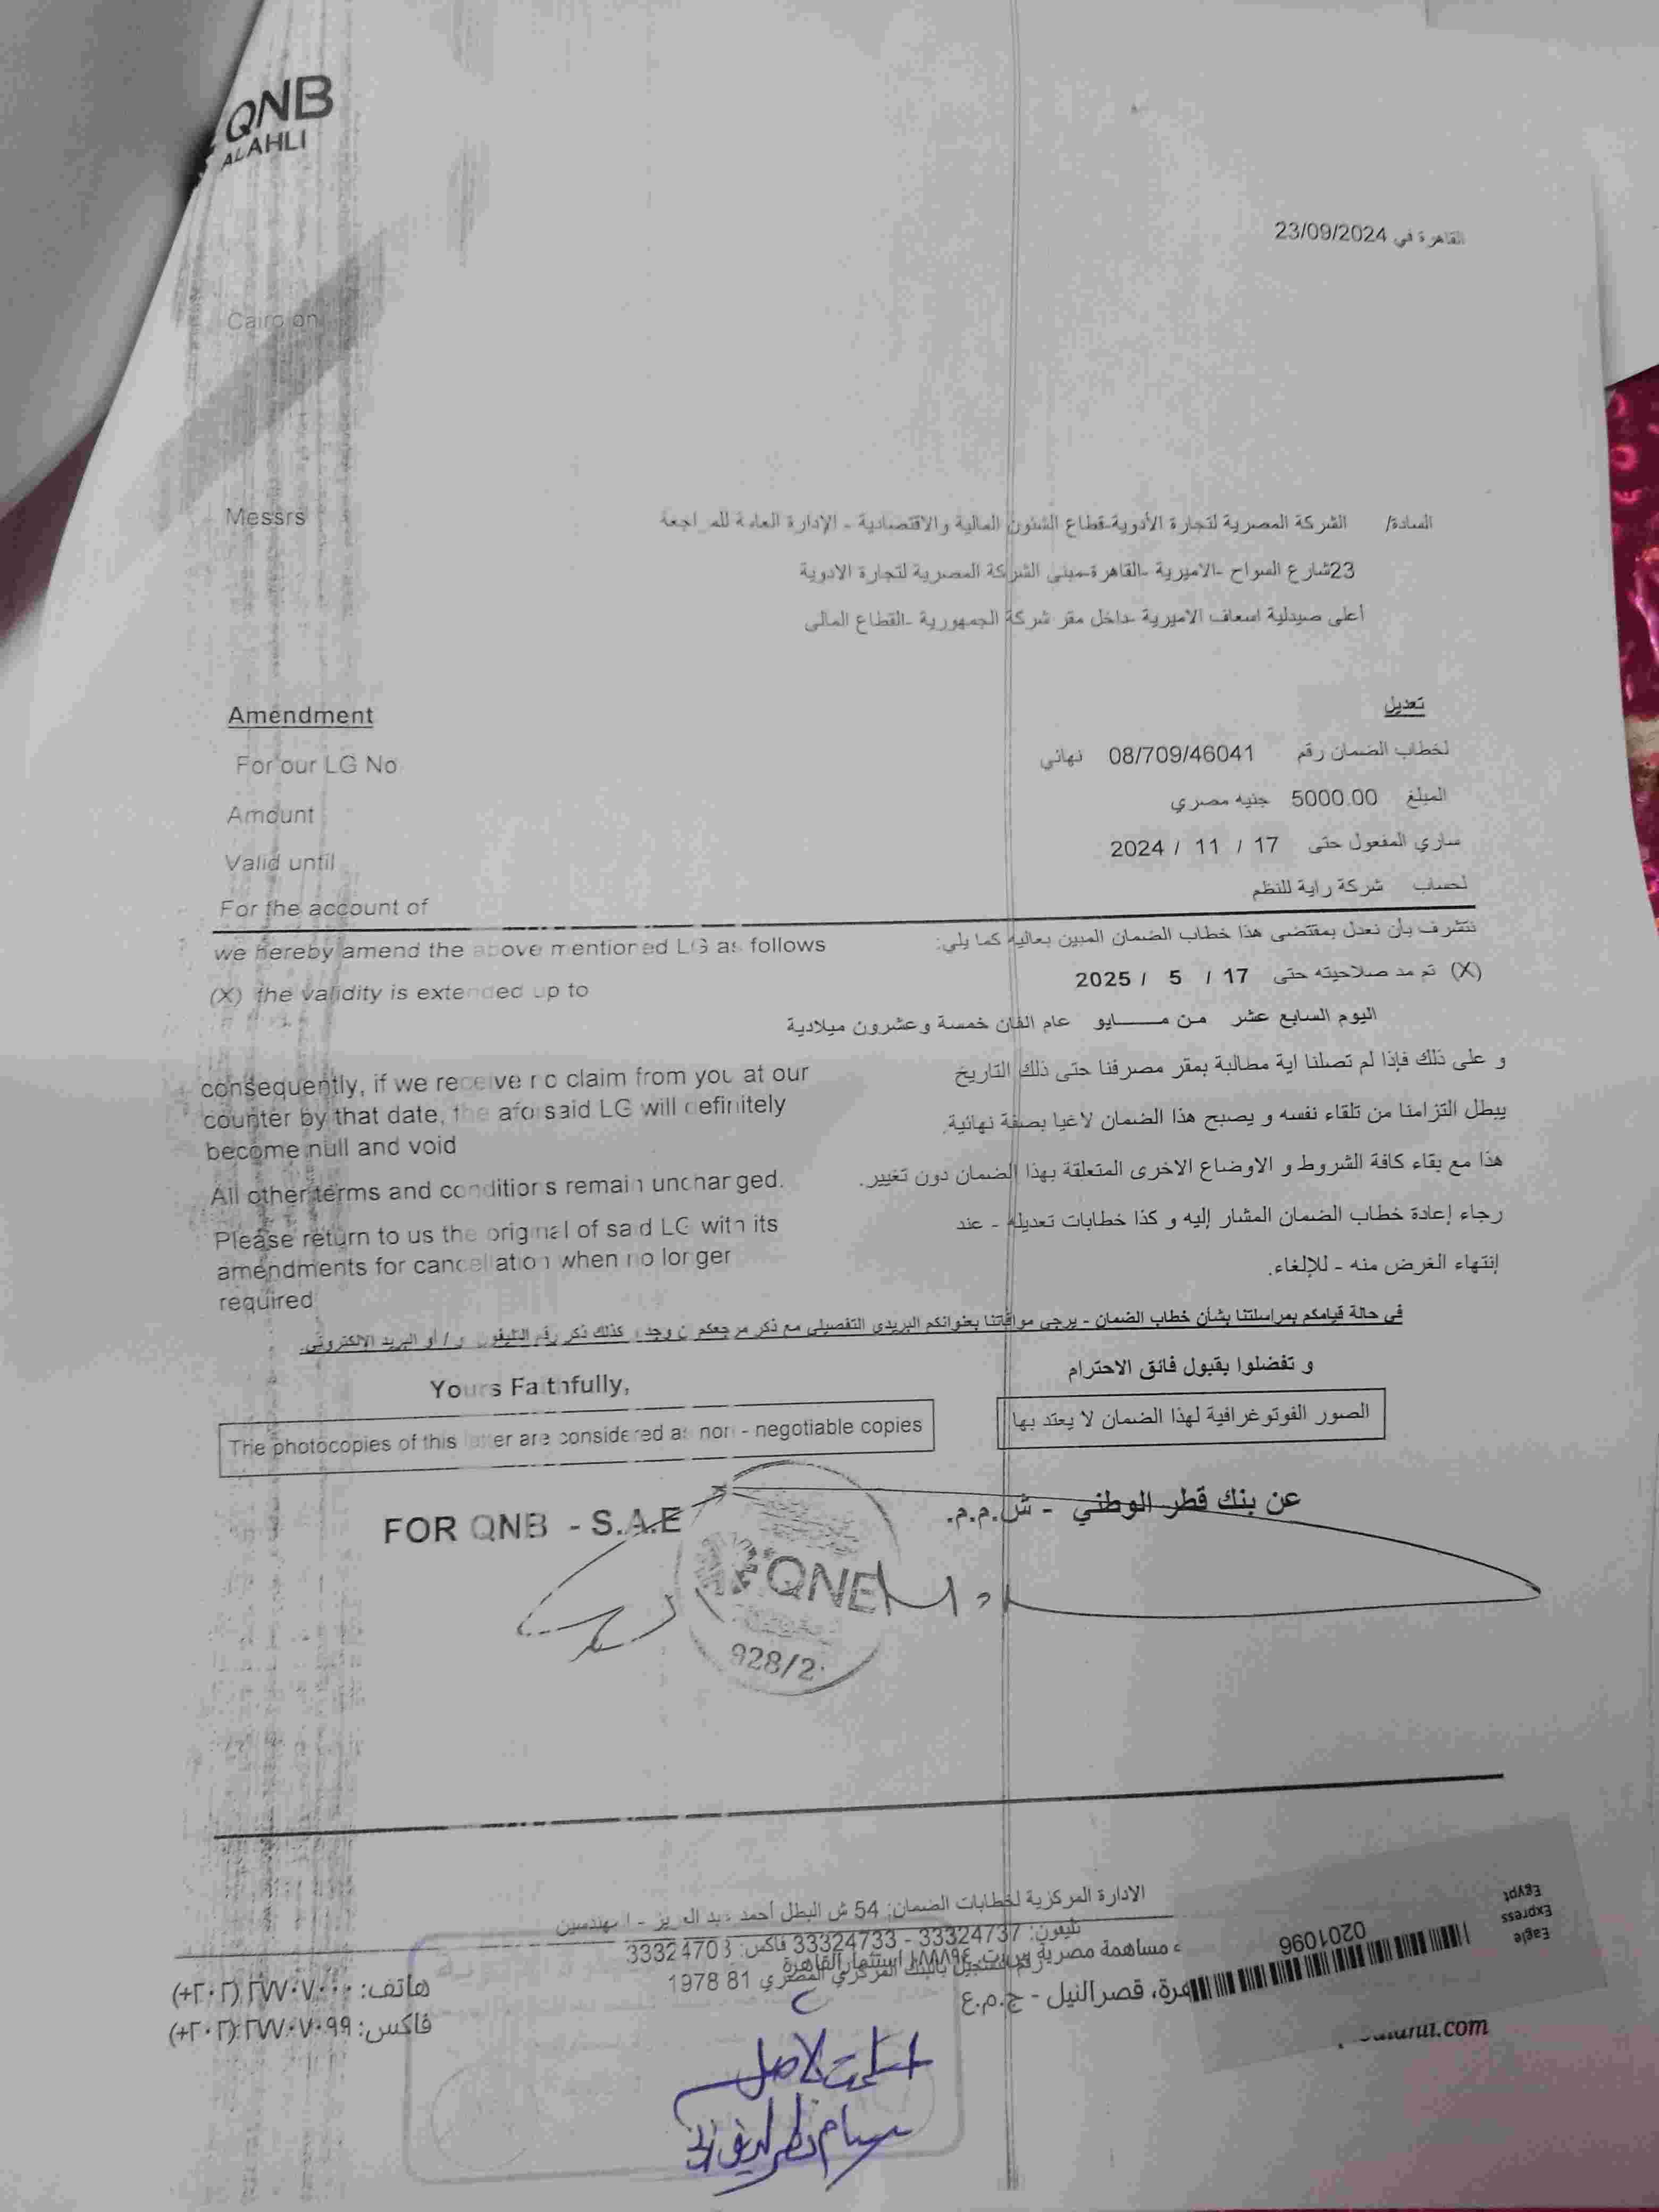 QNB
ALAHLI
القاهرة في 23/09/2024
Cairo on
Messrs
السادة/ الشركة المصرية لتجارة الأدوية-قطاع الشئون المالية والاقتصادية - الإدارة العامة للمراجعة
23شارع السواح -الاميرية -القاهرة-مبنى الشركة المصرية لتجارة الادوية
أعلى صيدلية اسعاف الاميرية -داخل مقر شركة الجمهورية -القطاع المالى
Amendment
تعديل
For our LG No
لخطاب الضمان رقم 08/709/46041 نهائي
Amount
المبلغ 5000.00 جنيه مصري
Valid until
ساري المفعول حتى 17 / 11 / 2024
For the account of
لحساب شركة راية للنظم
we hereby amend the above mentioned LG as follows
نتشرف بأن نعدل بمقتضى هذا خطاب الضمان المبين بعاليه كما يلي:
(X) the validity is extended up to
(X) تم مد صلاحيته حتى 17 / 5 / 2025
اليوم السابع عشر من مــــــايو عام الفان خمسة وعشرون ميلادية
consequently, if we receive no claim from you at our
counter by that date, the aforsaid LG will definitely
become null and void
و على ذلك فإذا لم تصلنا اية مطالبة بمقر مصرفنا حتى ذلك التاريخ
يبطل التزامنا من تلقاء نفسه و يصبح هذا الضمان لاغيا بصفة نهائية.
All other terms and conditions remain unchanged.
هذا مع بقاء كافة الشروط و الاوضاع الاخرى المتعلقة بهذا الضمان دون تغيير.
Please return to us the original of said LG with its
amendments for cancellation when no longer
required
رجاء إعادة خطاب الضمان المشار إليه و كذا خطابات تعديله - عند
إنتهاء الغرض منه - للإلغاء.
في حالة قيامكم بمراسلتنا بشأن خطاب الضمان - يرجى موافاتنا بعنوانكم البريدى التفصيلى مع ذكر مرجعكم ن وجد، كذلك ذكر رقم التليفون و / أو البريد الالكترونى.
Yours Faithfully,
و تفضلوا بقبول فائق الاحترام
The photocopies of this letter are considered as non - negotiable copies
الصور الفوتوغرافية لهذا الضمان لا يعتد بها
FOR QNB - S.A.E
عن بنك قطر الوطني - ش.م.م.
QNB
928/2
الادارة المركزية لخطابات الضمان: 54 ش البطل أحمد عبد العزيز - المهندسين
تليفون: 33324737 - 33324733 فاكس: 33324703
مساهمة مصرية
رقم التسجيل بالبنك المركزي المصري 81 1978
قصر النيل - ج.م.ع
هاتف: ٢٧٧٠٧٠٠٠ (٢٠٢+)
فاكس: ٢٧٧٠٧٠٩٩ (٢٠٢+)
Eagle
Express
Egypt
0201096
.com
استلمت الاصل